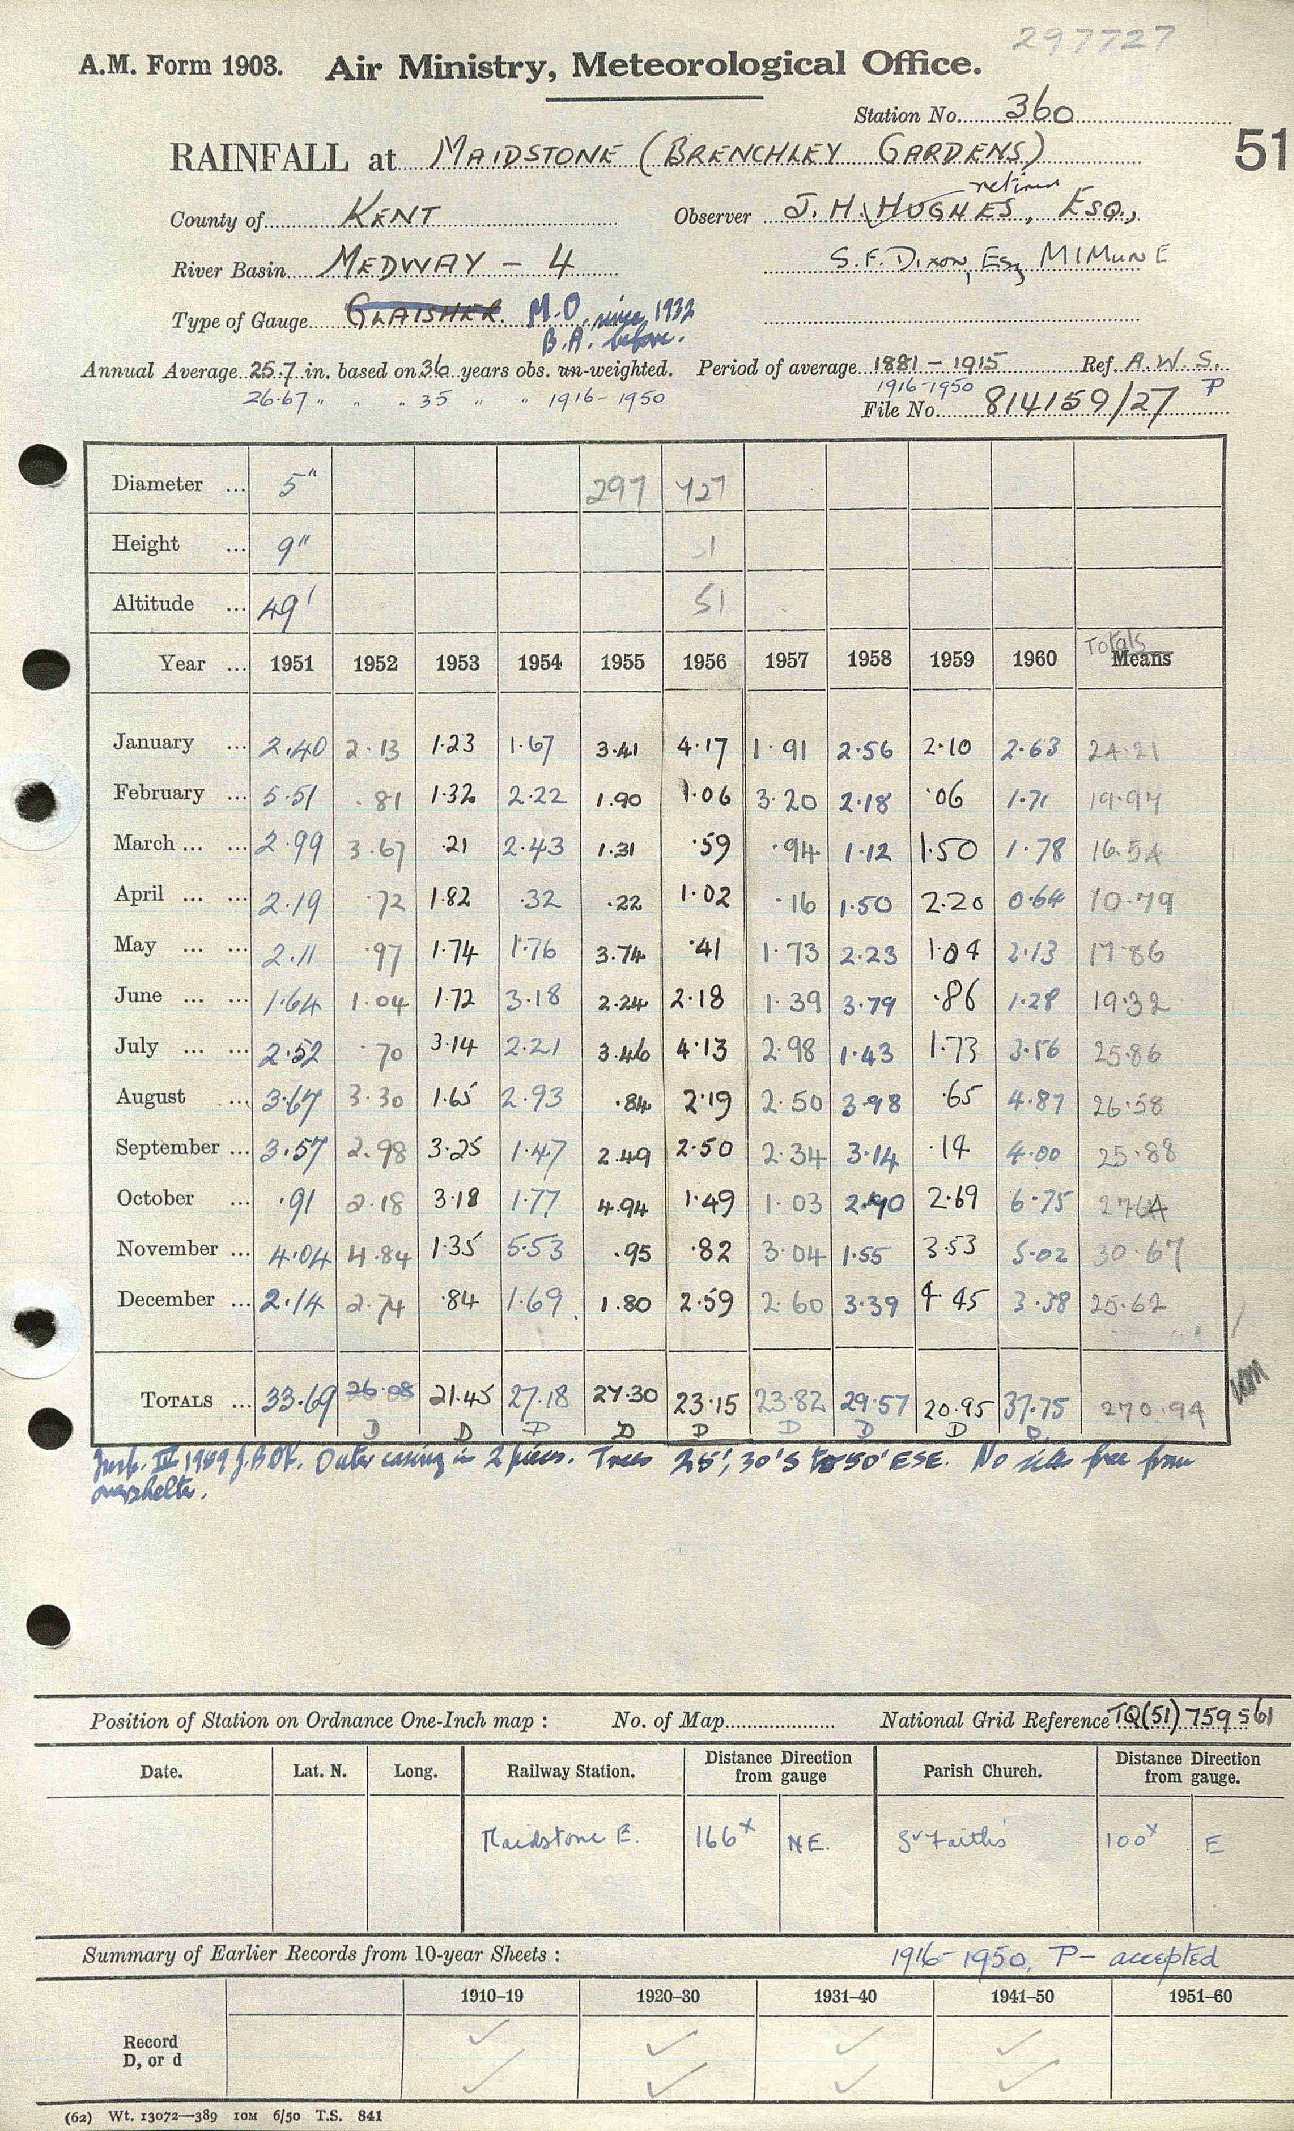 297727
A.M. Form 1903. Air Ministry, Meteorological Office.
Station No. 360
51
RAINFALL at MAIDSTONE (BRENCHLEY GARDENS)
retired
County of KENT Observer J. H. HUGHES, ESQ.,
River Basin MEDWAY - 4 S.F. DIXON, Esq, MIMunE
Type of Gauge GLAISHER. M.O. since 1932
B.A. before.
Annual Average 25.7 in. based on 36 years obs. un-weighted. Period of average 1881-1915 Ref. A.W.S.
26.67 " " " 35 " " 1916-1950 1916-1950 P
File No. 814159/27
Diameter ... 5" 297 727
Height ... 9" 51
Altitude ... 49' 51
Totals
Year ... 1951 1952 1953 1954 1955 1956 1957 1958 1959 1960 Means
January ... 2.40 2.13 1.23 1.67 3.41 4.17 1.91 2.56 2.10 2.63 24.21
February ... 5.51 .81 1.32 2.22 1.90 1.06 3.20 2.18 .06 1.71 19.97
March ... ... 2.99 3.67 .21 2.43 1.31 .59 .94 1.12 1.50 1.78 16.54
April ... ... 2.19 .72 1.82 .32 .22 1.02 .16 1.50 2.20 0.64 10.79
May ... ... 2.11 .97 1.74 1.76 3.74 .41 1.73 2.23 1.04 2.13 17.86
June ... ... 1.64 1.04 1.72 3.18 2.24 2.18 1.39 3.79 .86 1.28 19.32
July ... ... 2.52 .70 3.14 2.21 3.46 4.13 2.98 1.43 1.73 3.56 25.86
August ... 3.67 3.30 1.65 2.93 .84 2.19 2.50 3.98 .65 4.87 26.58
September ... 3.57 2.98 3.25 1.47 2.49 2.50 2.34 3.14 .14 4.00 25.88
October ... .91 2.18 3.18 1.77 4.94 1.49 1.03 2.70 2.69 6.75 27.64
November ... 4.04 4.84 1.35 5.53 .95 .82 3.04 1.55 3.53 5.02 30.67
December ... 2.14 2.74 .84 1.69 1.80 2.59 2.60 3.39 4.45 3.38 25.62
TOTALS ... 33.69 26.08 21.45 27.18 27.30 23.15 23.82 29.57 20.95 37.75 270.94
D D D D D D D D D
Insp. III 1959 OK. Outer casing in 2 pieces. Trees 25', 30'S to 50' ESE. No site free from
overshelter.
Position of Station on Ordnance One-Inch map : No. of Map National Grid Reference TQ(51) 759561
Date. Lat. N. Long. Railway Station. Distance Direction from gauge Parish Church. Distance Direction from gauge.
Maidstone E. 166x NE. St Faith's 100x E
Summary of Earlier Records from 10-year Sheets : 1916-1950, P- accepted
1910-19 1920-30 1931-40 1941-50 1951-60
Record
D, or d
(62) Wt. 13072-389 10M 6/50 T.S. 841